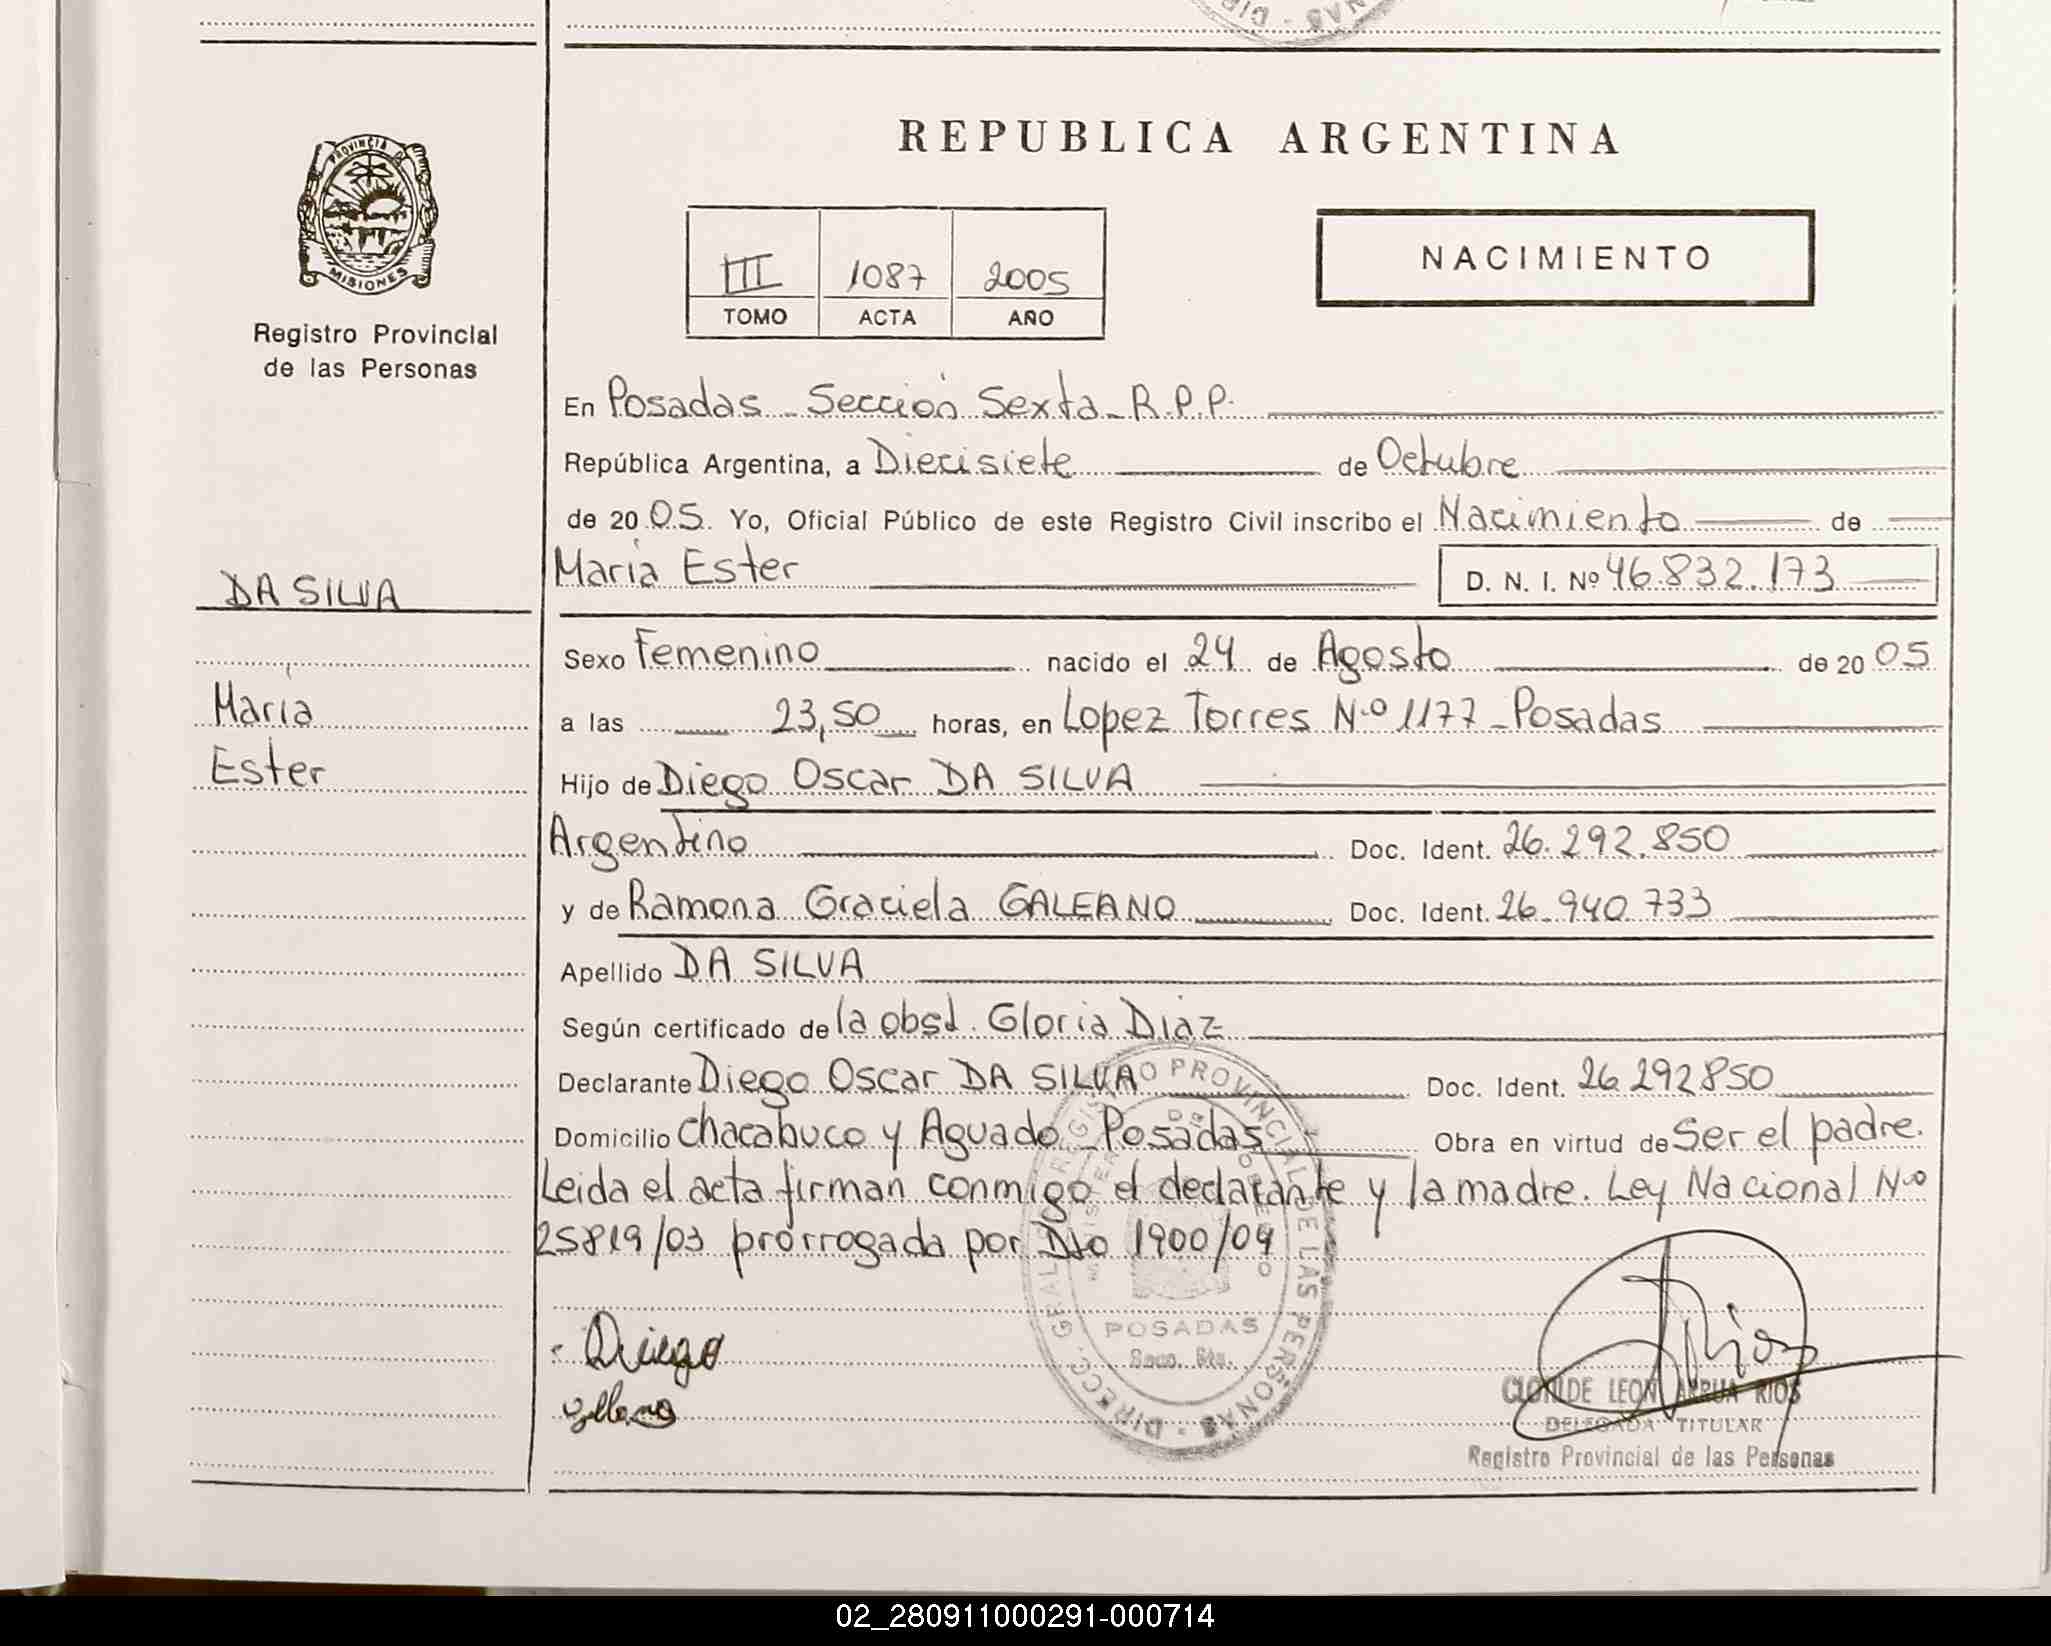 REPUBLICA ARGENTINA
PROVINCIA DE
MISIONES
Registro Provincial
de las Personas
III 1087 2005
TOMO ACTA AÑO
NACIMIENTO
En Posadas - Sección Sexta - R.P.P.
República Argentina, a Diecisiete de Octubre
de 20 05. Yo, Oficial Público de este Registro Civil inscribo el Nacimiento de
María Ester D. N. I. Nº 46.832.173
DA SILVA
María
Ester
Sexo Femenino nacido el 24 de Agosto de 20 05
a las 23,50 horas, en Lopez Torres N.º 1177 - Posadas
Hijo de Diego Oscar DA SILVA
Argentino Doc. Ident. 26.292.850
y de Ramona Graciela GALEANO Doc. Ident. 26.940.733
Apellido DA SILVA
Según certificado de la obst. Gloria Diaz
Declarante Diego Oscar DA SILVA Doc. Ident. 26.292850
Domicilio Chacabuco y Aguado - Posadas Obra en virtud de Ser el padre.
Leida el acta firman conmigo el declarante y la madre. Ley Nacional N.º
25819/03 prorrogada por Dto 1900/04
DIRECC. GRAL. REGISTRO PROVINCIAL DE LAS PERSONAS
POSADAS
Secc. 6ta.
Diego
CLOTILDE LEON ARRUA RIOS
DELEGADA TITULAR
Registro Provincial de las Personas
02_280911000291-000714